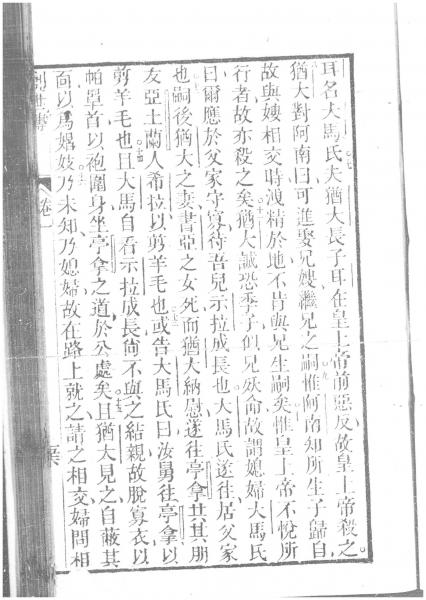 耳名大馬氏夫猶大長子耳在皇上帝前惡反故皇上帝殺之
猶大對阿南曰可進娶兄嫂繼兄之嗣惟阿南知所生子歸自
故與嫂相交時洩精於地不肯與兄生嗣矣惟皇上帝不悅所
行者故亦殺之矣猶大誠恐季子似兄妖命故謂媳婦大馬氏
曰爾應於父家守寡待吾兒示拉成長也大馬氏遂往居父家
也嗣後猶大之妻書亞之女死而猶大納慰遂往亭拿共其朋
友亞土蘭人希拉以剪羊毛也或告大馬氏曰汝舅往亭拿以
剪羊毛也且大馬自看示拉成長尙不與之結親故脫寡衣以
帕單首以袍圍身坐亭拿之道於公處矣且猶大見之自蔽其
面以爲娼妓乃未知乃媳婦故在路上就之請之相交婦問相
創世傳
卷一